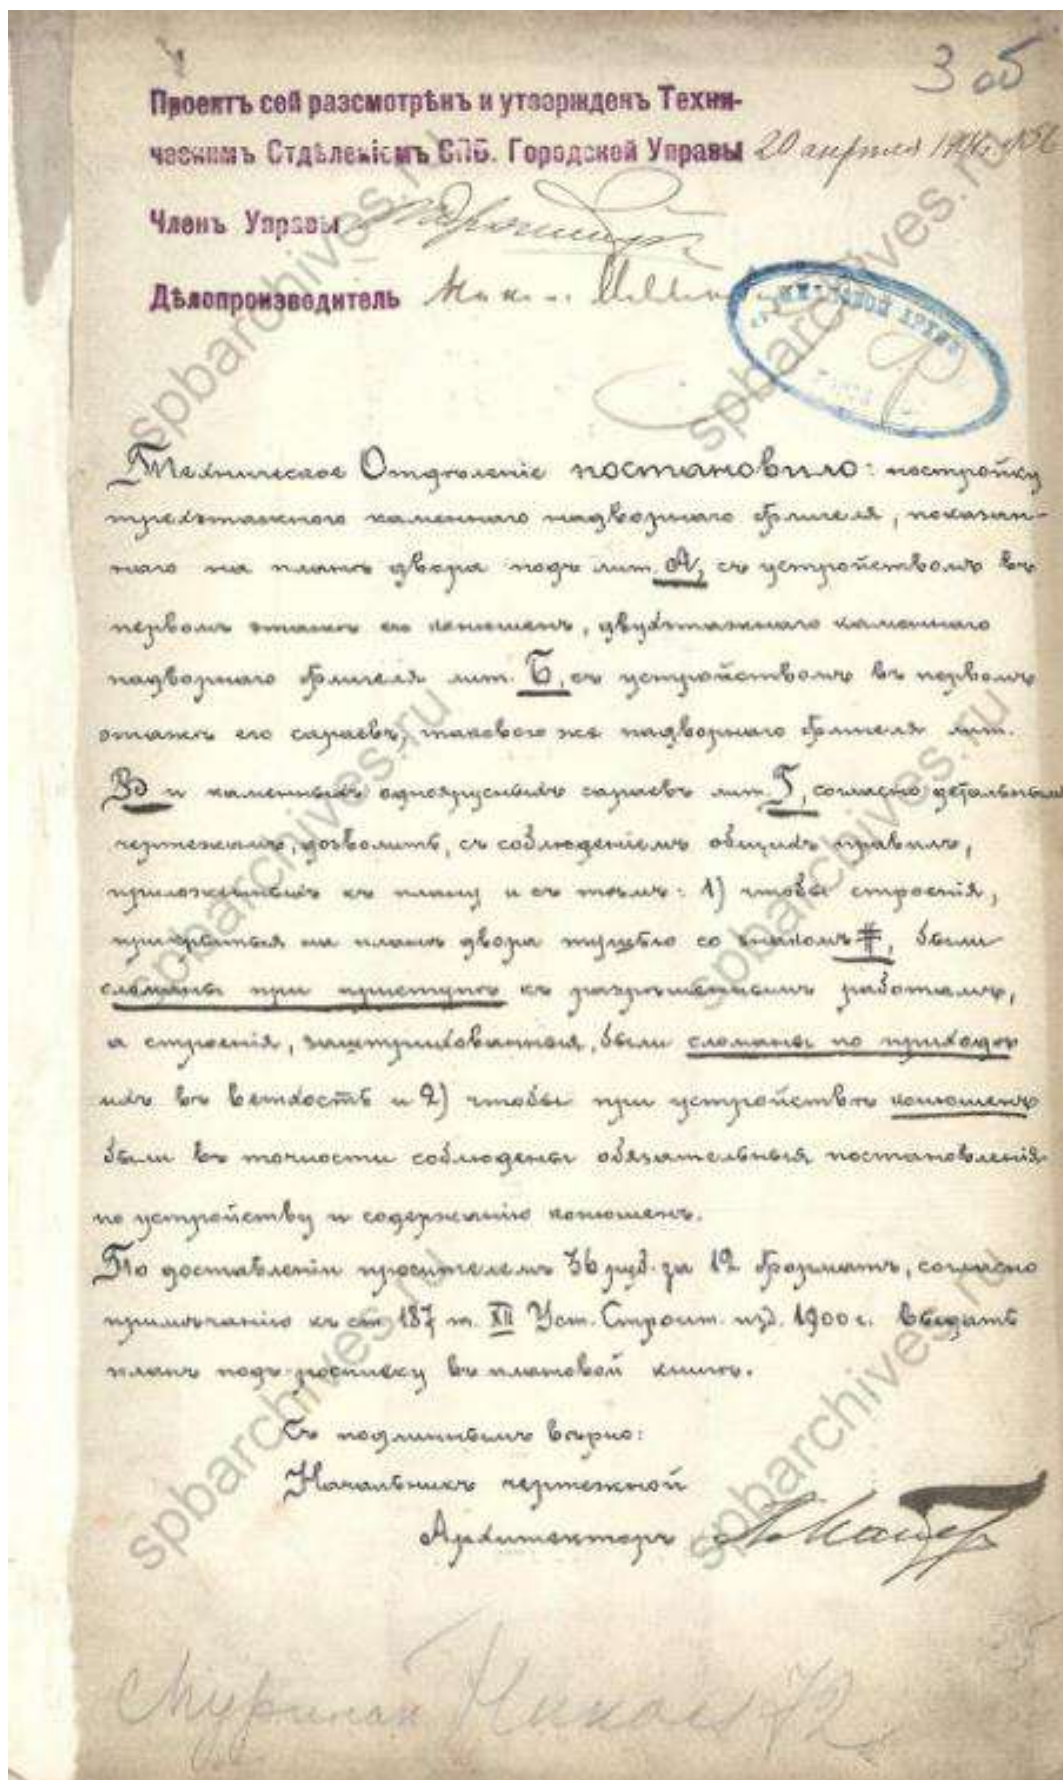 3 об
Проектъ сей разсмотрѣнъ и утвержденъ Техни-
ческимъ Отдѣленіемъ СПБ. Городской Управы 20 апрѣля
Членъ Управы
Дѣлопроизводитель
Техническое Отдѣленіе постановило: постройку
трехэтажнаго каменнаго надворнаго флигеля, показан-
наго на планѣ двора подъ лит. А, съ устройствомъ въ
первомъ этажѣ его конюшенъ, двухэтажнаго каменнаго
надворнаго флигеля лит. Б, съ устройствомъ въ первомъ
этажѣ его сараевъ, такового же надворнаго флигеля лит.
В и каменныхъ одноярусныхъ сараевъ лит. Г, согласно детальнымъ
чертежамъ, дозволить, съ соблюденіемъ общихъ правилъ,
приложенныхъ къ плану и съ тѣмъ: 1) чтобы строенія,
прикрытыя на планѣ двора тушью со знакомъ #, были
сломаны при приступѣ къ разрѣшеннымъ работамъ,
а строенія, заштрихованныя, были сломаны по приходѣ
ихъ въ ветхость и 2) чтобы при устройствѣ конюшенъ
были въ точности соблюдены обязательныя постановленія
по устройству и содержанію конюшенъ.
По доставленіи просителемъ 36 руб. за 12 форматъ, согласно
примѣчанію къ ст. 187 т. XII Уст. Строит. изд. 1900 г. выдать
планъ подъ росписку въ плановой книгѣ.
Съ подлиннымъ вѣрно:
Начальникъ чертежной
Архитекторъ
72
spbarchives.ru
spbarchives.ru
spbarchives.ru
spbarchives.ru
spbarchives.ru
spbarchives.ru